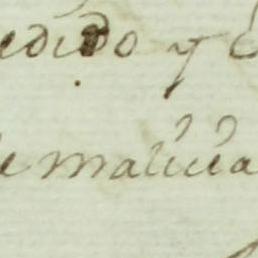 edido y e
e malicia